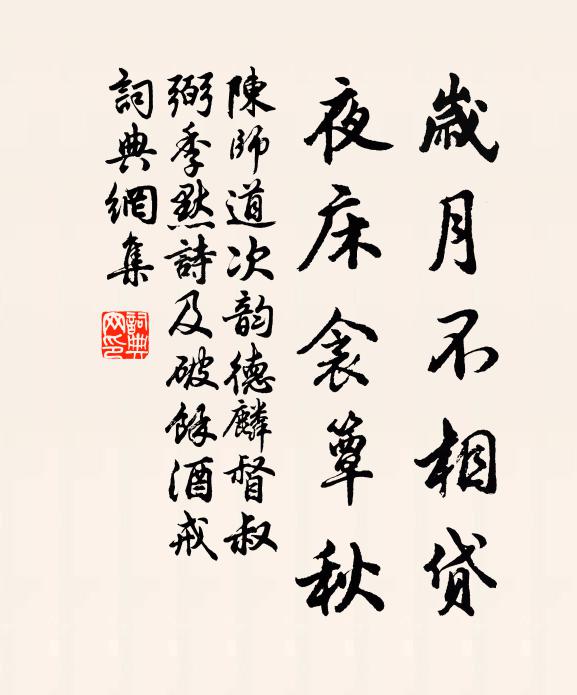 歲月不相貸
夜床衾簟秋
陳師道次韵德麟督叔
弼季默詩及破餘酒戒
詞典網集
詞典网印